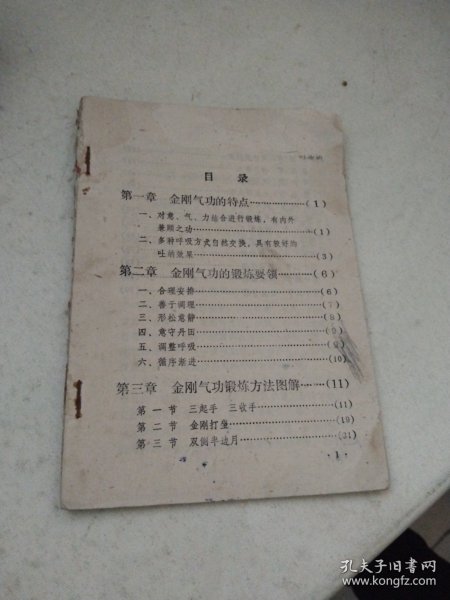 目录
第一章 金刚气功的特点……………(1)
一、对意、气、力结合进行锻炼，有内外
兼顾之功……………(1)
二、多种呼吸方式自然交换，具有较好的
吐纳效果……………(3)
第二章 金刚气功的锻炼要领………(6)
一、合理安排……………(6)
二、善于调理……………(7)
三、形松意静……………(8)
四、意守丹田……………(9)
五、调整呼吸……………(9)
六、循序渐进……………(10)
第三章 金刚气功锻炼方法图解……(11)
第一节 三起手 三收手……………(11)
第二节 金刚打坐……………(19)
第三节 双侧半边月……………(21)
·1·
孔夫子旧书网
www.kongfz.com